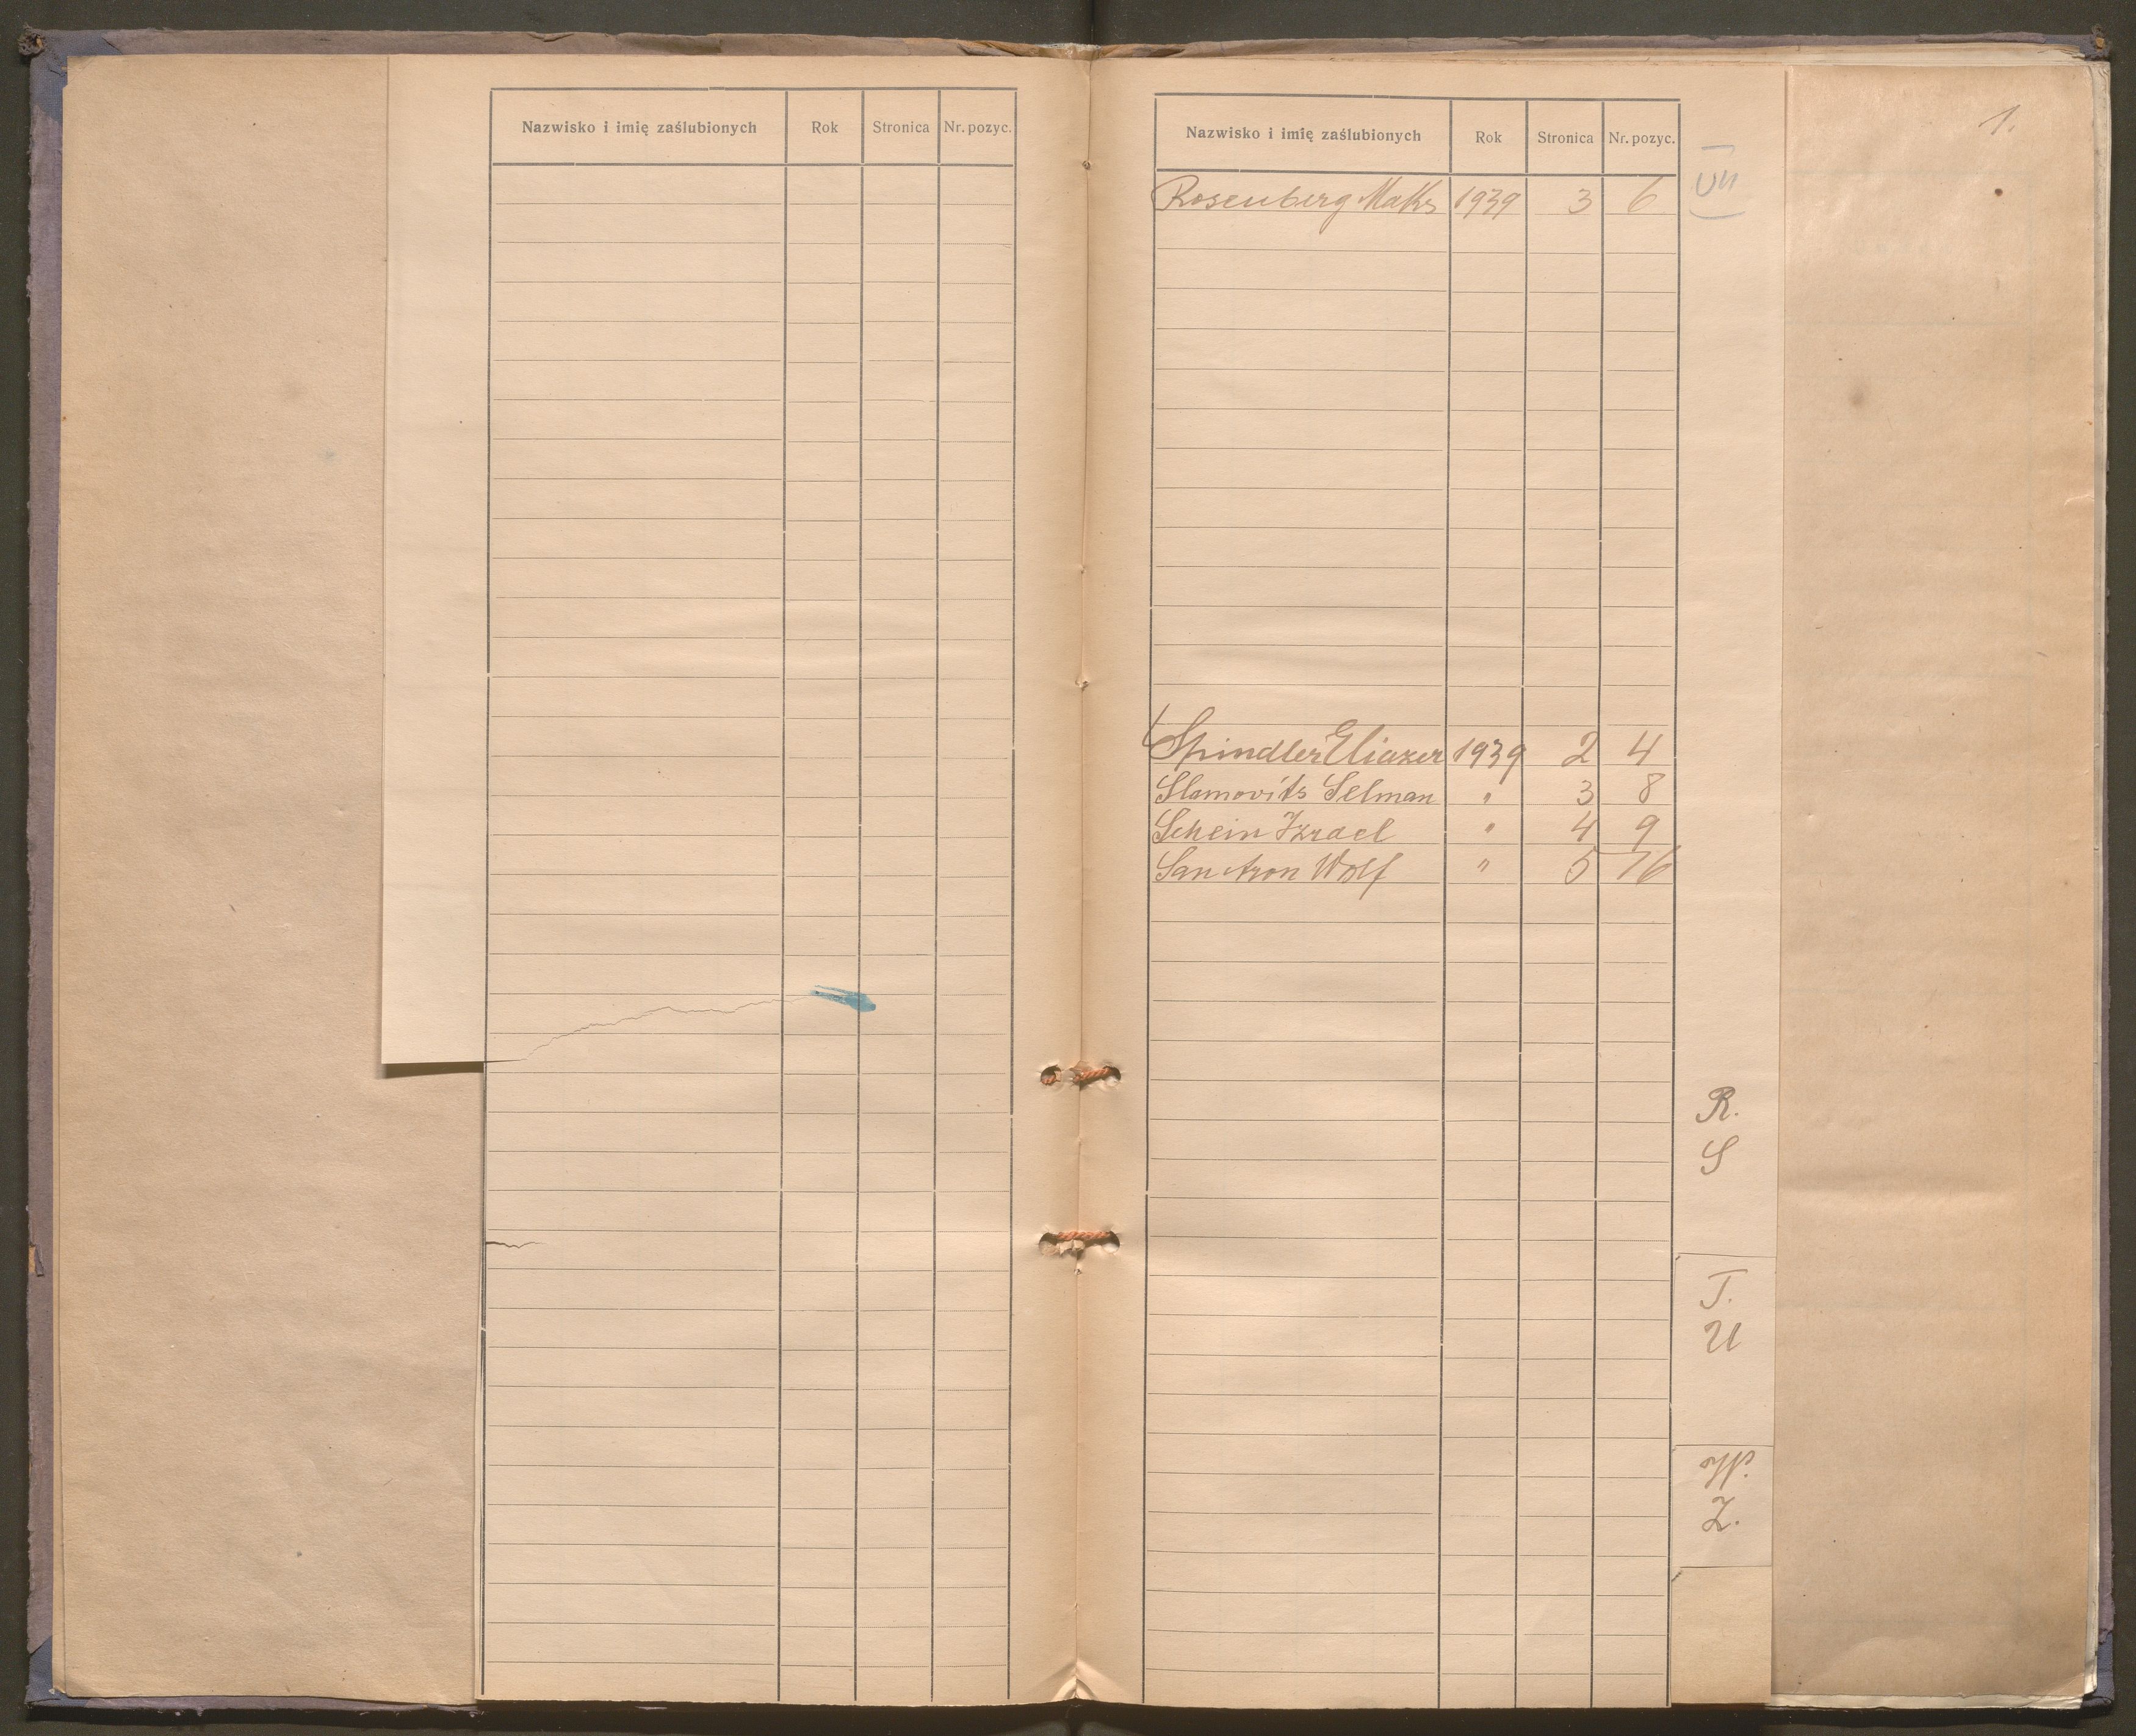 Nazwisko i imię zaślubionych Rok Stronica Nr. pozyc.
Nazwisko i imię zaślubionych Rok Stronica Nr. pozyc.
1.
VII
Rosenberg Maks 1939 3 6
Spindler Eliazer 1939 2 4
Slamovits Selman " 3 8
Schein Izrael " 4 9
San Aron Wolf " 5 16
R.
S
T.
U
W.
Z.